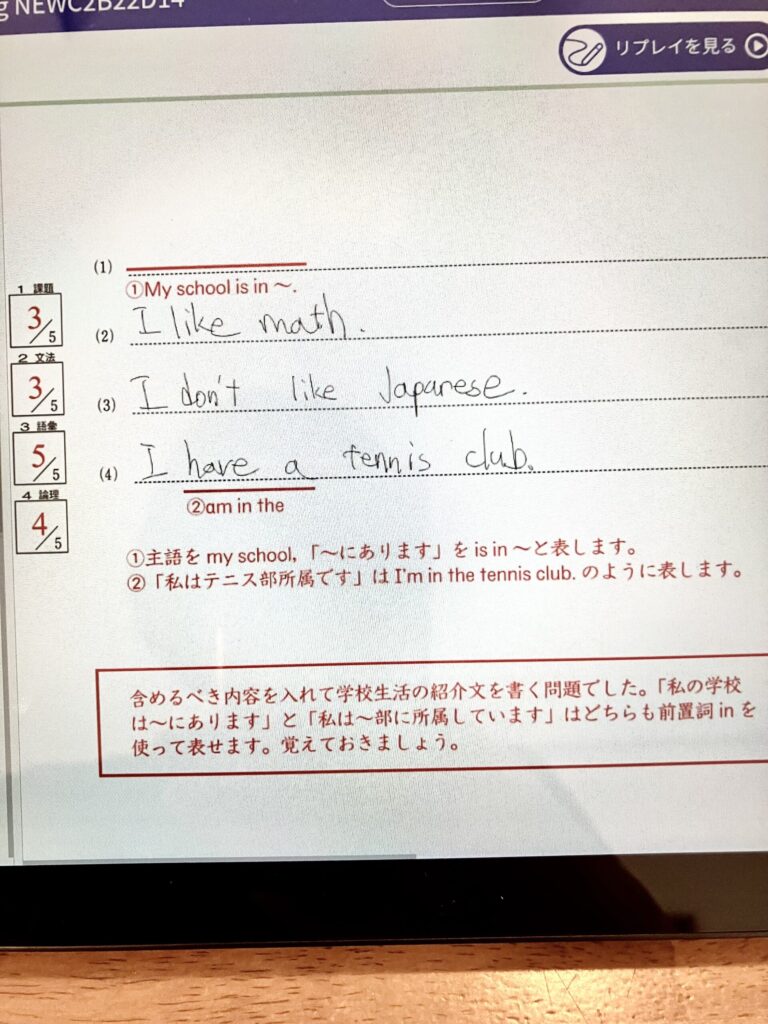 NEWC2B22D14
リプレイを見る
(1)
①My school is in ～.
1 課題
3/5
(2) I like math.
2 文法
3/5
(3) I don't like Japanese.
3 語彙
5/5
(4) I have a tennis club.
4 論理
4/5
②am in the
①主語を my school,「～にあります」を is in ～と表します。
②「私はテニス部所属です」は I'm in the tennis club. のように表します。
含めるべき内容を入れて学校生活の紹介文を書く問題でした。「私の学校
は～にあります」と「私は～部に所属しています」はどちらも前置詞 in を
使って表せます。覚えておきましょう。